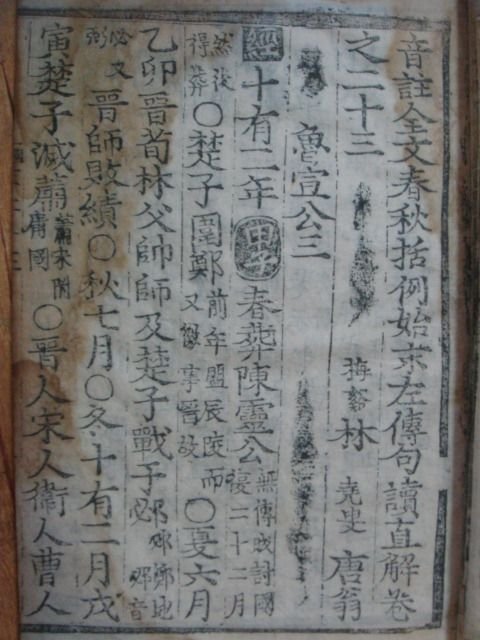 音註全文春秋括例始末左傳句讀直解卷
之二十三 梅谿林 堯叟 唐翁
魯宣公三
經十有二年甲子春葬陳靈公無傳賊討國復二十二月
然後得葬○楚子圍鄭前年盟辰陵而又徼事晉故○夏六月
乙卯晉荀林父帥師及楚子戰于邲邲鄭地邲音
必又弼晉師敗績○秋七月○冬十有二月戊
寅楚子滅蕭蕭宋附庸國○晉人宋人衛人曹人